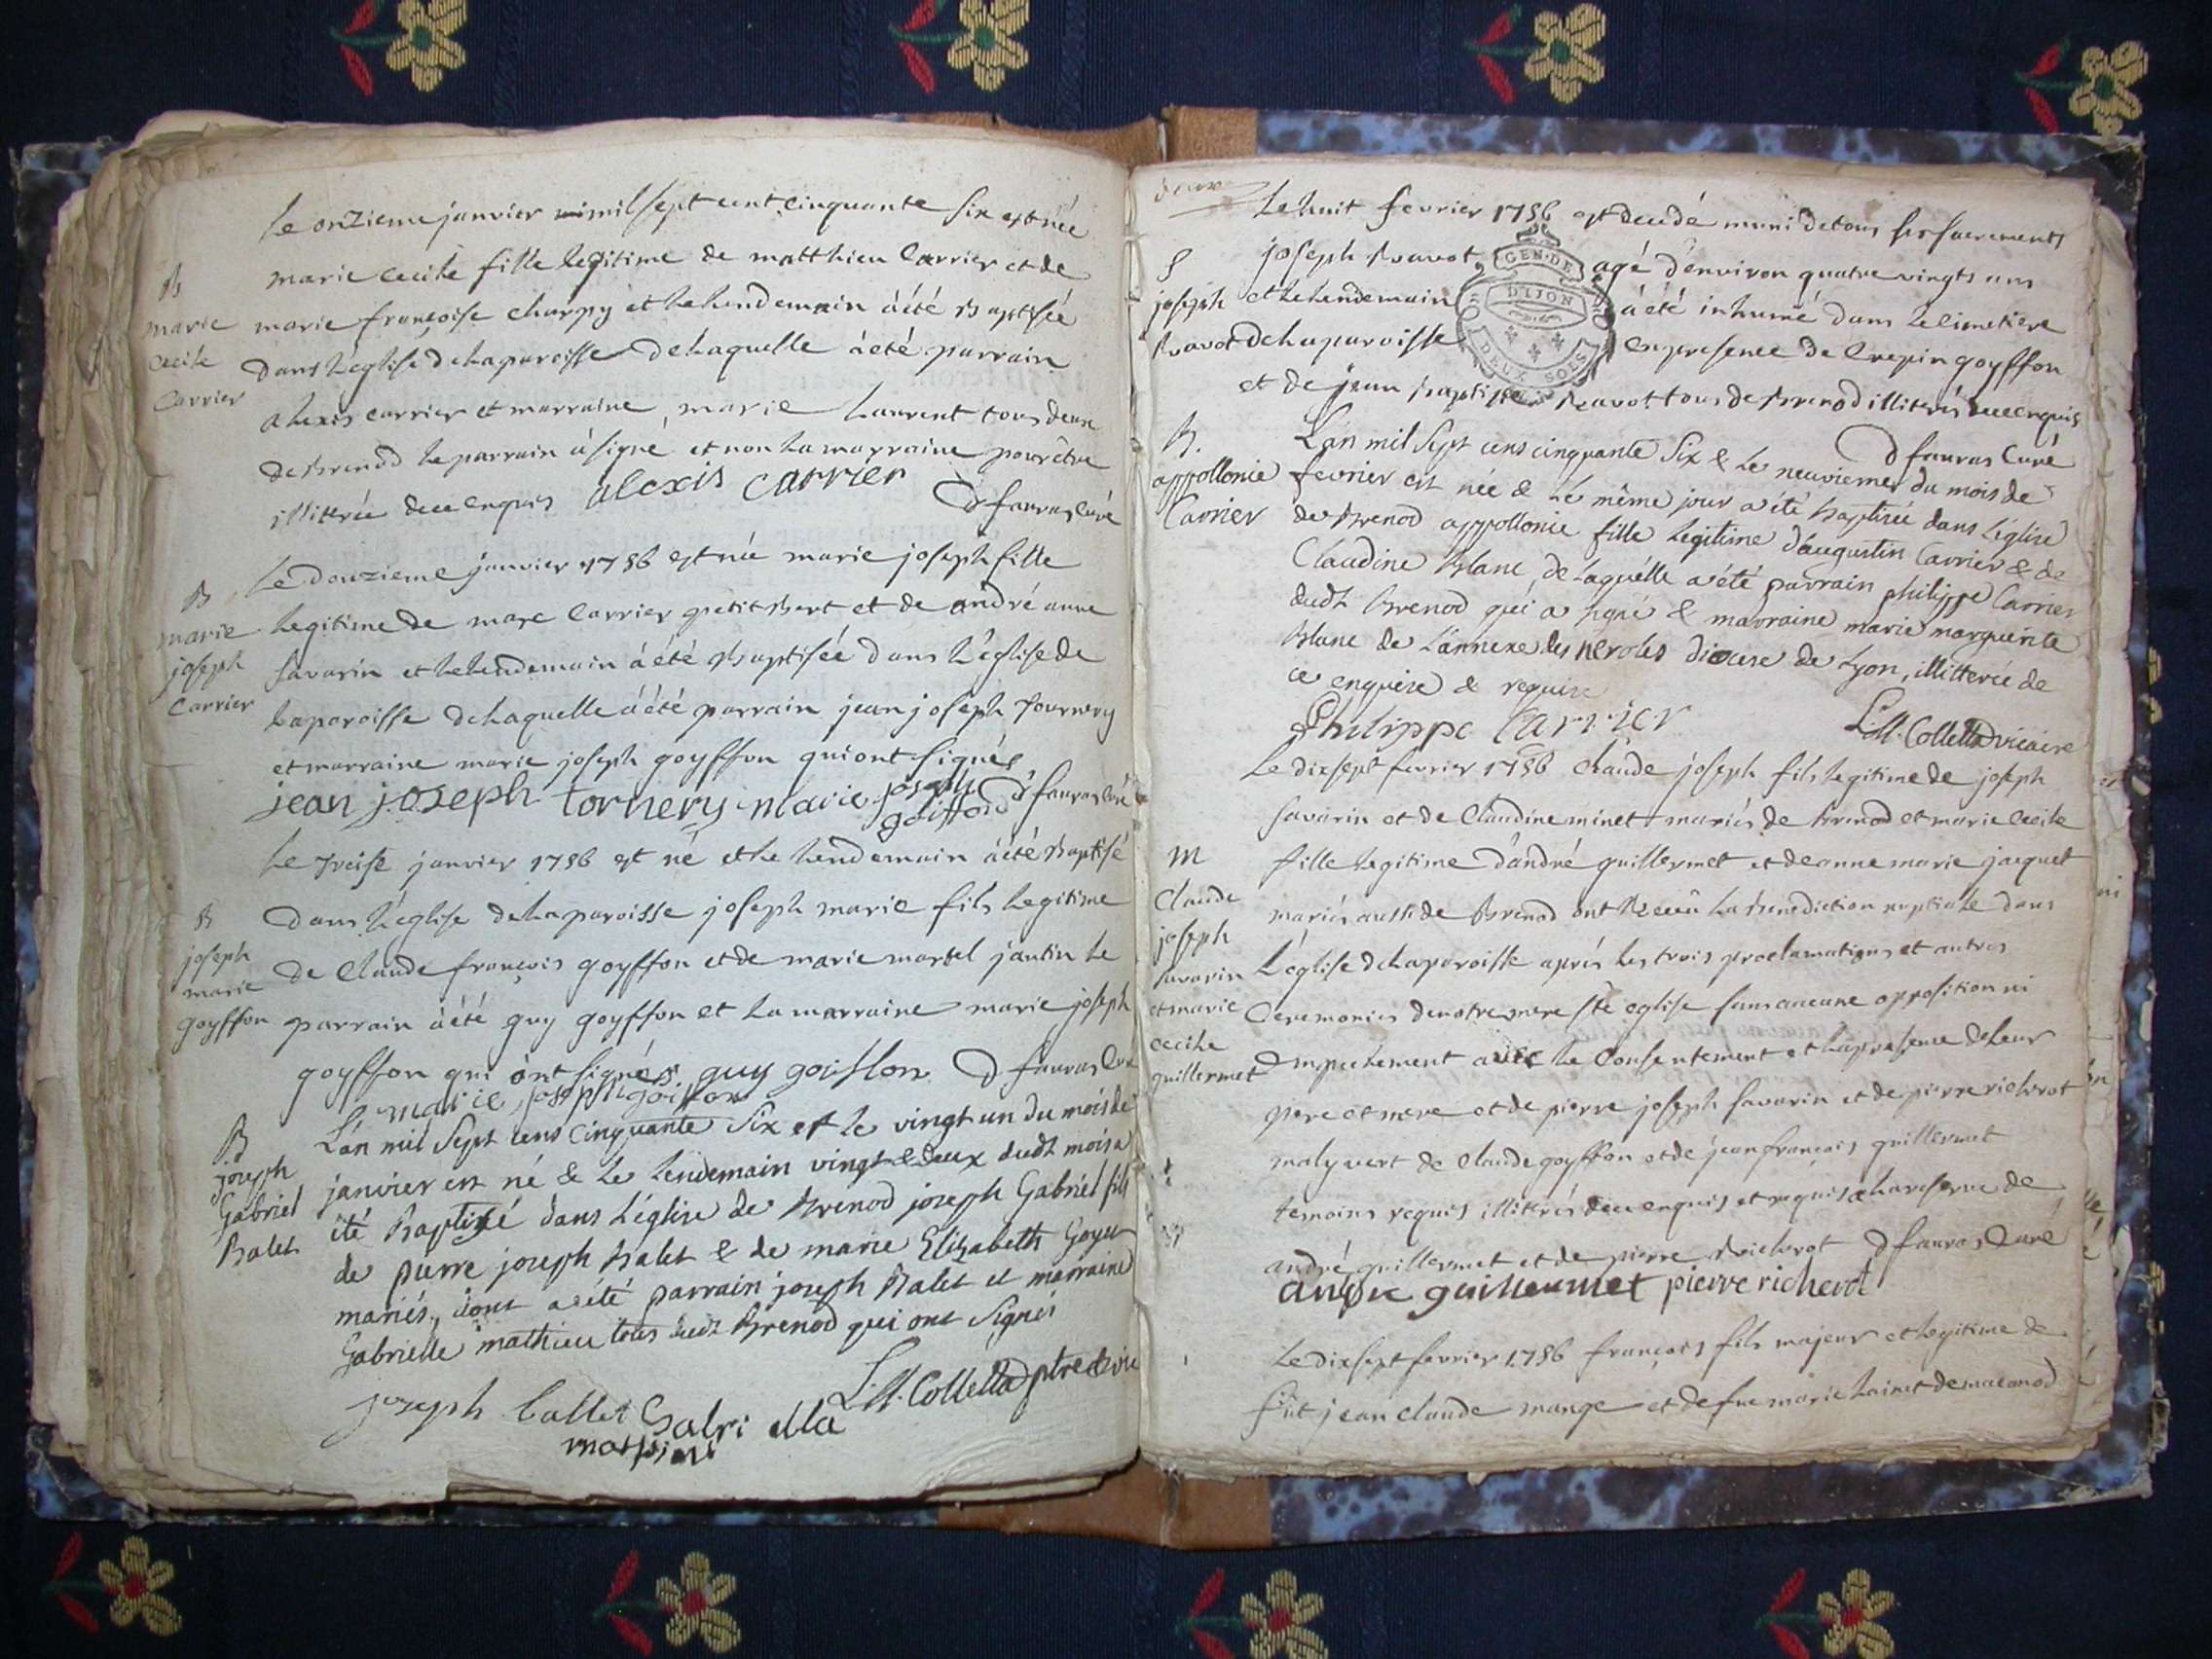 Le onzieme janvier mil sept cent cinquante six est née
B
marie cecile fille legitime de matthieu Carrier et de
marie
marie françoise charpy et le lendemain à été Baptisée
cecile
dans l'eglise de la paroisse de laquelle à eté parrain
Carrier
alexis carrier et marraine marie Laurent tous deux
de Brenod le parrain à signé et non la marraine pour être
illiterée de ce enquis alexis carrier
D favras curé
Le douzieme janvier 1756 est née marie joseph fille
B
legitime de marc Carrier petit Bert et de andré anne
marie
joseph
savarin et le lendemain à été Baptisée dans l'église de
Carrier
la paroisse de laquelle à été parrain jean joseph Tournery
et marraine marie joseph goyffon qui ont signés
jean joseph tornery marie joseph goiffon D favras curé
Le treise janvier 1756 est né et le lendemain à eté Baptisé
B
dans l'église de la paroisse joseph marie fils legitime
joseph
marie
de Claude françois goyffon et de marie martel jantin le
goyffon
parrain à été guy goyffon et la marraine marie joseph
goyffon qui ont signés guy goiffon D favras Curé
marie joseph goiffon
B
L'an mil sept cens cinquante six et le vingt un du mois de
joseph
janvier est né & le lendemain vingt & deux dudt mois a
Gabriel
été Baptisé dans l'église de Brenod joseph Gabriel fils
Balet
de pierre joseph balet & de marie Elizabeth Goyet
mariés, dont a été parrain joseph Balet et marraine
Gabrielle mathieu tous dudt Brenod qui ont signés
joseph ballet Gabri ella L.M. Colletta ptre & vic
mathieu
deux
Le huit fevrier 1756 est decedé muni de tous ses sacrements
S
joseph Ravot agé d'environ quatre vingts ans
joseph
et le lendemain à été inhumé dans le cimetiere
Ravot
de la paroisse en presence de Crepin goyffon
et de jean baptiste Ravot tous de Brenod illiterés de ce enquis
GEN. DE
DIJON
DEUX SOLS
D favras Curé
B.
L'an mil sept cens cinquante six & le neuvieme du mois de
appollonie
fevrier est née & le même jour a été baptisée dans l'église
Carrier
de Brenod appollonie fille legitime d'augustin Carrier & de
Claudine Blanc, de laquelle a été parrain philippe Carrier
dudt Brenod qui a signé & marraine marie marguerite
Blanc de l'annexe des neroles diocese de Lyon, illitterée de
ce enquise & requise
Philippe Carrier L.M. Colletta vicaire
Le dixsept fevrier 1756 claude joseph fils legitime de joseph
savarin et de Claudine minet mariés de Brenod et marie Cecile
M
fille legitime d'andré guillermet et de anne marie jacquet
Claude
mariés aussi de Brenod ont Receu la benediction nuptiale dans
joseph
savarin
L'église de la paroisse après les trois proclamations et autres
et marie
Ceremonies de notre mere ste eglise sans aucune opposition ni
cecile
guillermet
Empechement avec le Consentement et la presence de leur
pere et mere et de pierre joseph savarin et de pierre richerot
malyvert de Claude goyffon et de jean françois guillermet
temoins requis illiterés de ce enquis et requis a la reserve de
andré guillermet et de pierre Richerot D favras Curé
andre guillermet pierre richerot
Le dixsept fevrier 1756 françois fils majeur et legitime de
fut jean claude mange et de fue marie Lainet de maconod